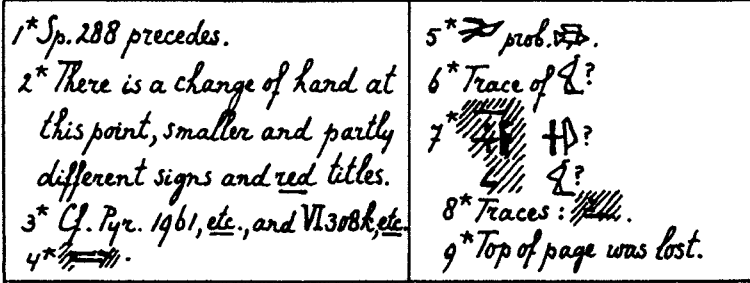 1* Sp. 288 precedes.
2* There is a change of hand at
this point, smaller and partly
different signs and red titles.
3* Cf. Pyr. 1961, etc., and VI 308k, etc.
4*
5* prob. .
6* Trace of ?
7* ?
?
8* Traces : .
9* Top of page was lost.